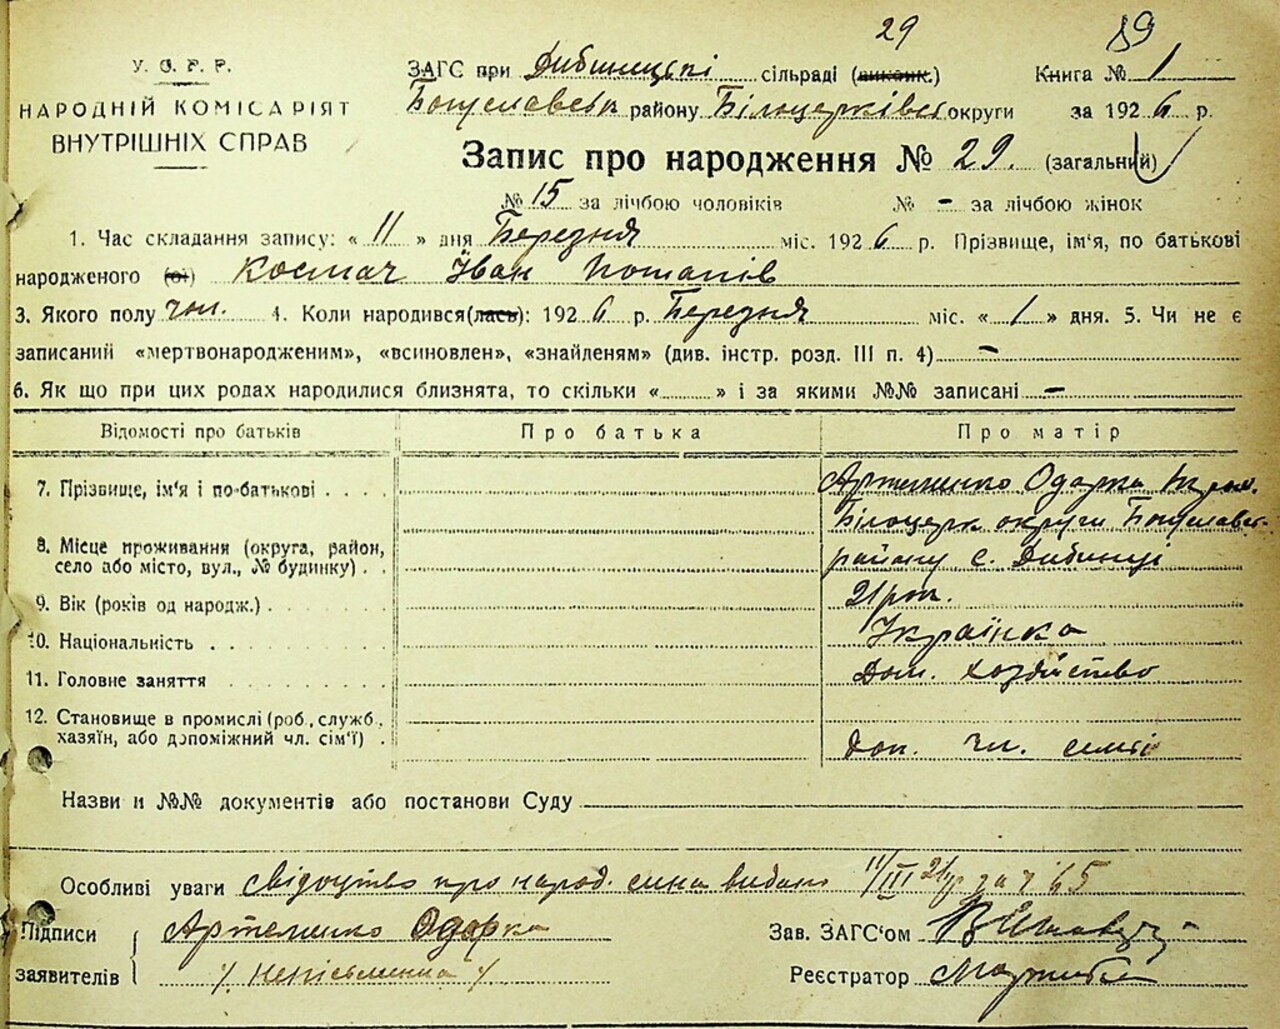 29 89
У. С. Р. Р.
НАРОДНІЙ КОМІСАРІЯТ
ВНУТРІШНІХ СПРАВ
ЗАГС при Дибинецькі сільраді (виконк.) Книга № 1
Богуславськ району Білоцерківськ округи за 1926 р.
Запис про народження № 29. (загальний)
№ 15 за лічбою чоловіків № - за лічбою жінок
1. Час складання запису: « 11 » дня Березня міс. 1926 р. Прізвище, ім'я, по батькові
народженого (ої) Космач Іван Потапів
3. Якого полу чол. 4. Коли народився(лась): 1926 р. Березня міс. « 1 » дня. 5. Чи не є
записаний «мертвонародженим», «всиновлен», «знайденям» (див. інстр. розд. III п. 4) -
6. Як що при цих родах народилися близнята, то скільки « » і за якими №№ записані -
Відомості про батьків Про батька Про матір
7. Прізвище, ім'я і по-батькові Артеменко Одарка
Білоцерк округи Богуславськ
8. Місце проживання (округа, район,
село або місто, вул., № будинку) району с. Дибинці
9. Вік (років од народж.) 21 рок.
10. Національність Українка
11. Головне заняття Дом. хозяйство
12. Становище в промислі (роб., служб.,
хазяїн, або допоміжний чл. сім'ї) доп. чл. семьї
Назви и №№ документів або постанови Суду
Особливі уваги свідоцтво про народ. сина видано 11/III за № 65
Підписи Артеменко Одарка Зав. ЗАГС'ом
заявителів / неписьменна / Реєстратор